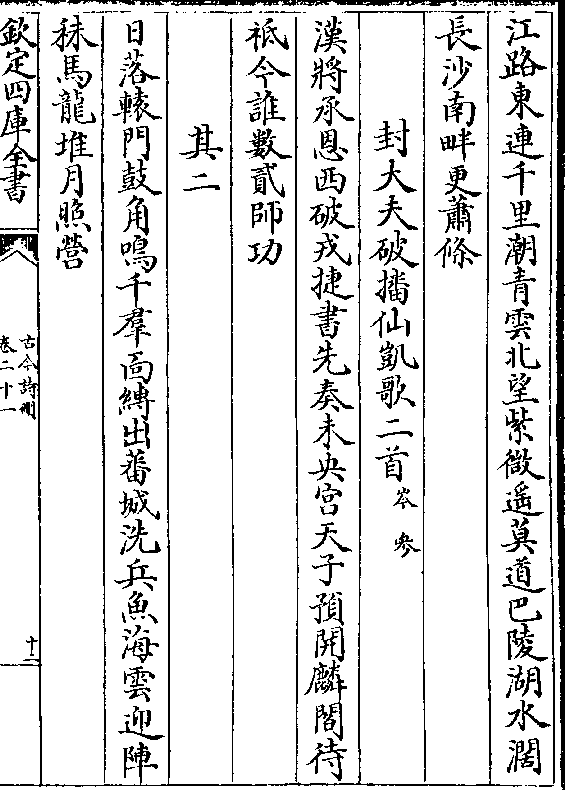 江路東連千里潮青雲北望紫微遙莫道巴陵湖水濶
長沙南畔更蕭條
封大夫破播仙凱歌二首 岑參
漢將承恩西破戎捷書先奏未央宮天子預開麟閣待
祗今誰數貳師功
其二
日落轅門鼓角鳴千羣面縛出蕃城洗兵魚海雲迎陣
秣馬龍堆月照營
欽定四庫全書
古今詩刪
卷二十一
十二